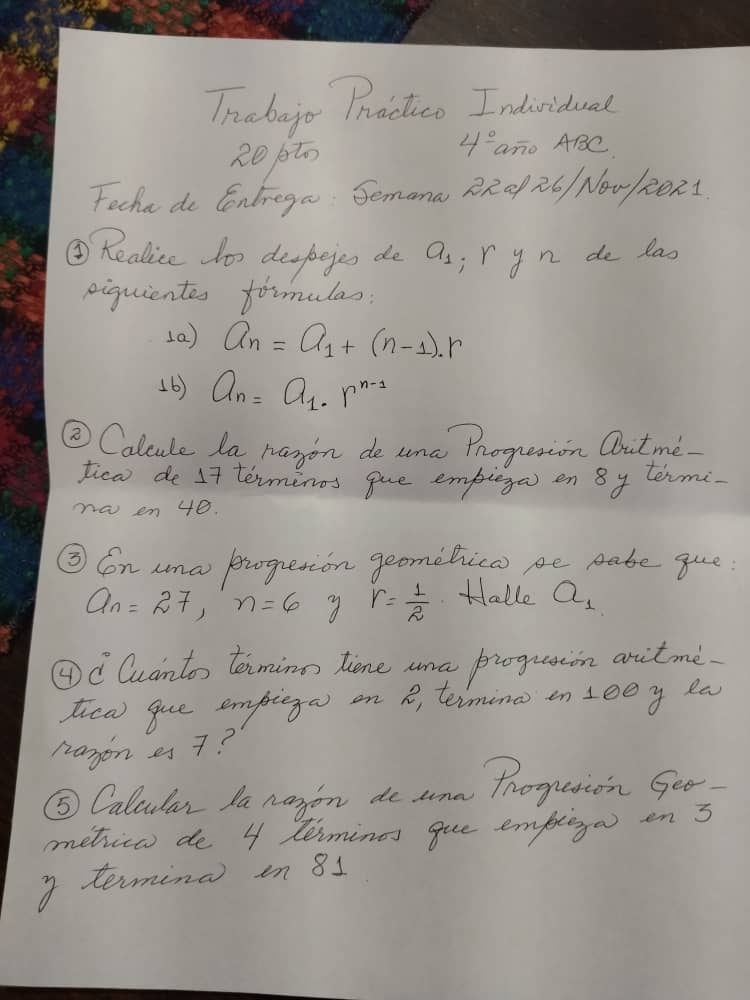 Trabajo Práctico Individual
20 ptos 4º año ABC.
Fecha de Entrega: Semana 22 al 26/Nov/2021.
① Realice los despejes de a₁; r y n de las
siguientes fórmulas:
1a) an = a₁ + (n-1).r
1b) an = a₁. rⁿ⁻¹
② Calcule la razón de una Progresión Aritmé-
tica de 17 términos que empieza en 8 y térmi-
na en 40.
③ En una progresión geométrica se sabe que:
an = 27, n=6 y r= 1/2. Halle a₁.
④ ¿Cuántos términos tiene una progresión aritmé-
tica que empieza en 2, termina en 100 y la
razón es 7?
⑤ Calcular la razón de una Progresión Geo-
métrica de 4 términos que empieza en 3
y termina en 81